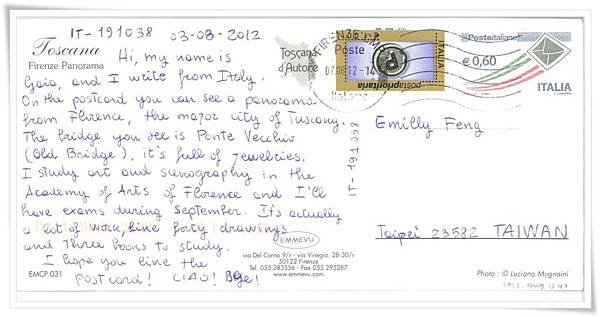 IT-191038 03-08-2012
Toscana
Firenze Panorama
Toscana
d'Autore
Hi, my name is
Gaia, and I write from Italy.
On the postcard you can see a panorama
from Florence, the major city of Tuscany.
The bridge you see is Ponte Vecchio
(Old Bridge), it's full of jewelries.
I study art and scenography in the
Academy of Arts of Florence and I'll
have exams during September. It's actually
a lot of work, like forty drawings
and three books to study.
I hope you like the
postcard! CIAO! Bye!
EMCP 031
EMMEVU
via Del Corno 9/r - via Vinegia, 28-30/r
50122 Firenze
Tel. 055 283556 - Fax 055 295287
www.emmevu.com
FIRENZE
Poste
07.08.12-14
ITALIA
postaprioritaria
Posteitaliane
€ 0,60
ITALIA
IT-191038
Emilly Feng
Taipei 23582 TAIWAN
Photo: © Luciano Mugnaini